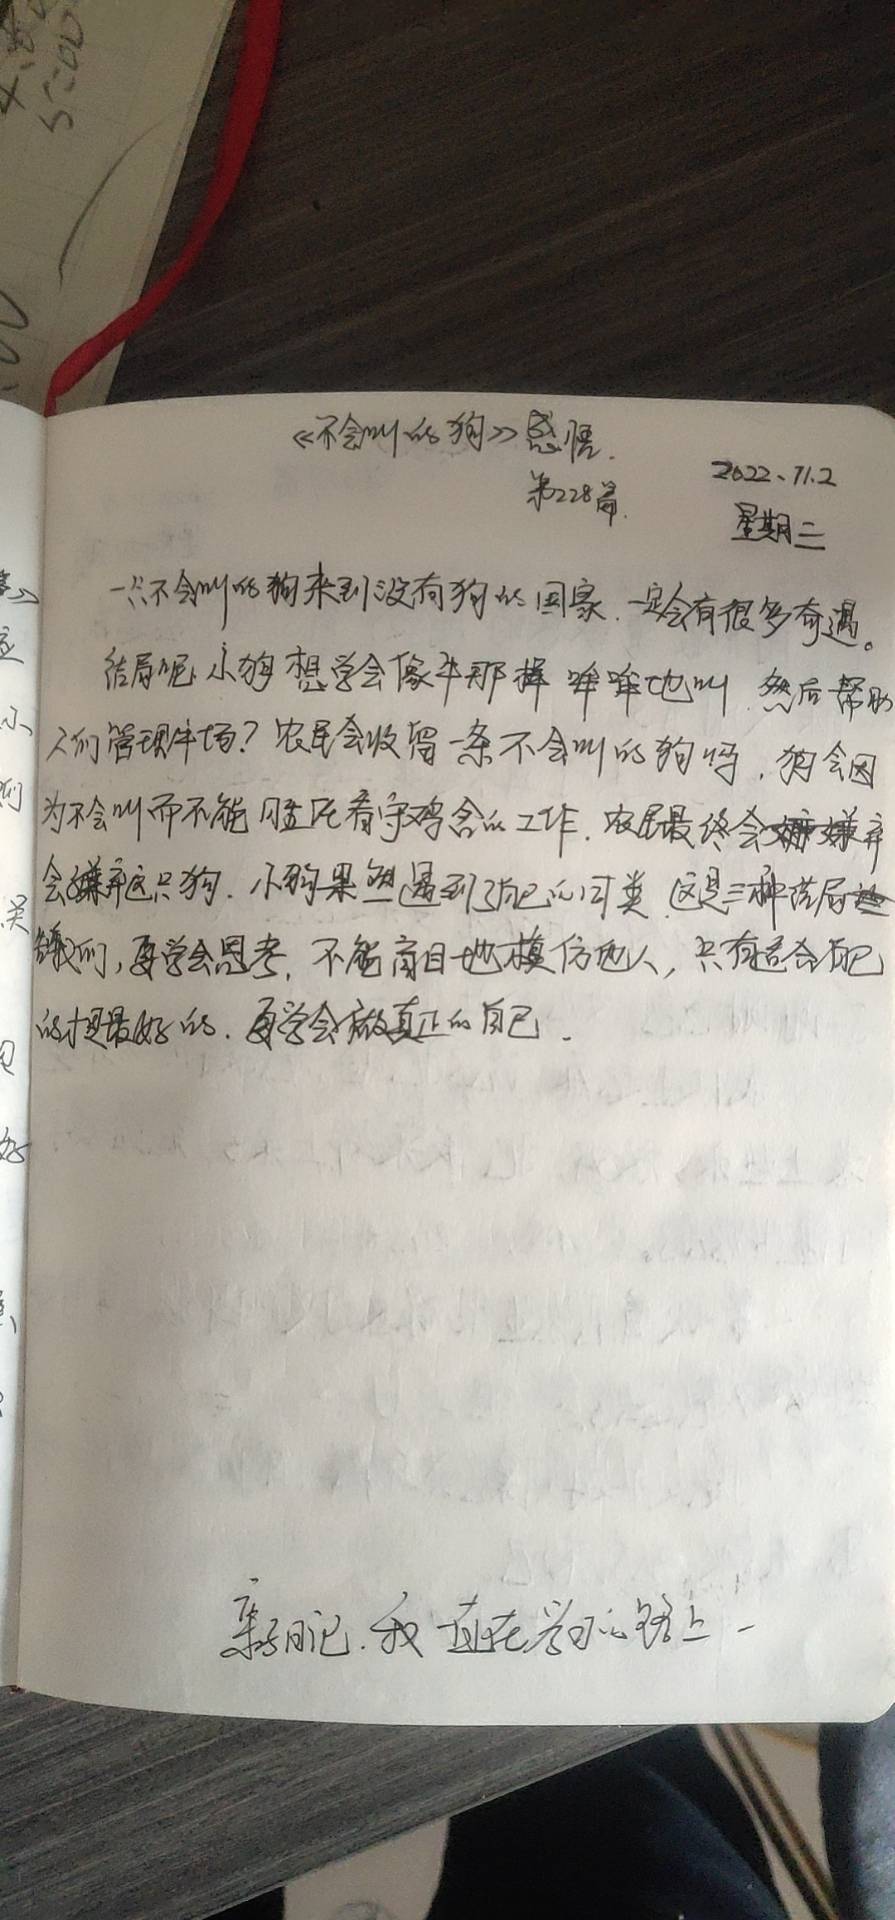 《不会叫的狗》感悟.
第228篇.
2022、11.2
星期三
一只不会叫的狗来到没有狗的国家.一定会有很多奇遇。
结局呢 小狗想学会像牛那样哞哞地叫.然后帮助
人们管理牛场?农民会收留一条不会叫的狗吗.狗会因
为不会叫而不能胜任看守鸡舍的工作.农民最终会嫌弃
会嫌弃这只狗.小狗果然遇到了自己的同类.这是三种结局
我们,要学会思考,不能盲目地模仿他人,只有适合自己
的才是最好的.要学会做真正的自己.
亲子日记.我一直在学习的路上
5:00